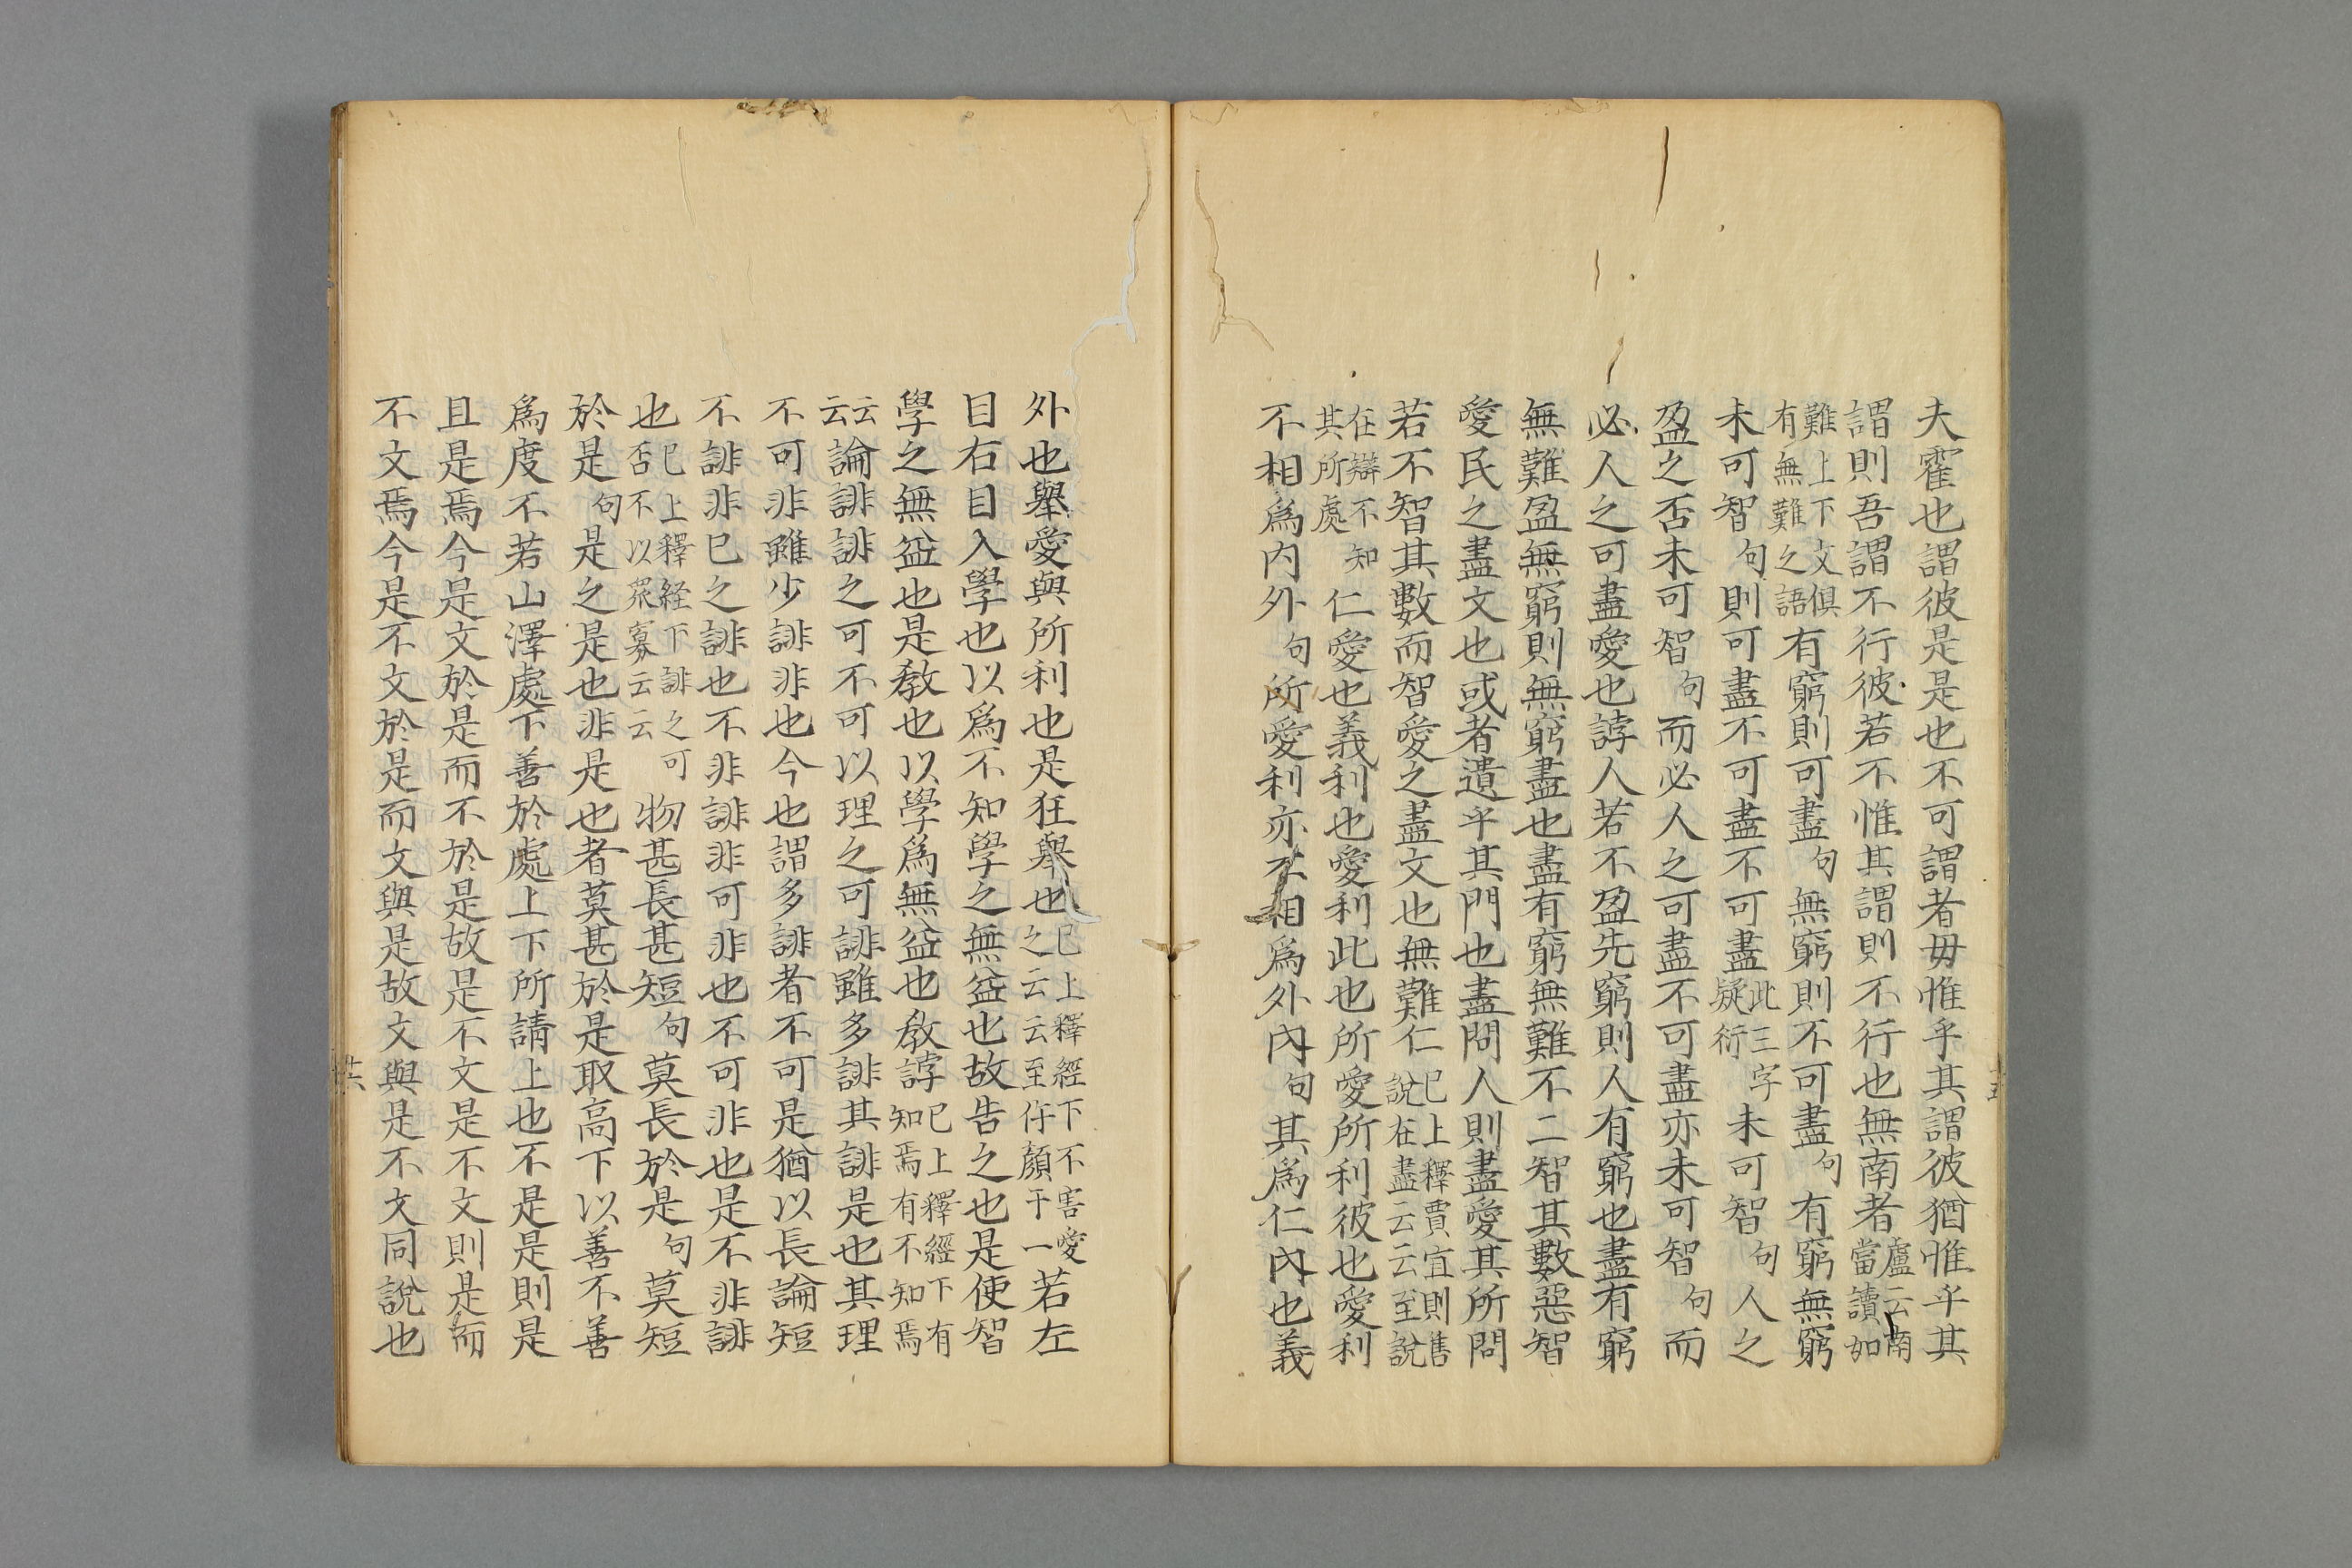 夫霍也謂彼是是也不可謂者毋惟乎其謂彼猶惟乎其
謂則吾謂不行彼若不惟其謂則不行也無南者盧云南當讀如
難上下文俱有無難之語有窮則可盡句無窮則不可盡句有窮無窮
未可智句則可盡不可盡不可盡此三字疑衍未可智句人之
盈之否未可智句而必人之可盡不可盡亦未可智句而
必人之可盡愛也誖人若不盈先窮則人有窮也盡有窮
無難盈無窮則無窮盡也盡有窮無難不二智其數惡智
愛民之盡文也或者遺乎其門也盡問人則盡愛其所問
若不智其數而智愛之盡文也無難仁已上釋賈宜則讐說在盡云云至說
在辯不知其所處仁愛也義利也愛利此也所愛所利彼也愛利
不相爲内外句所愛利亦不相爲外內句其爲仁內也義
外也舉愛與所利也是狂舉也已上釋經下不害愛之云云至仵顏干一若左
目右目入學也以爲不知學之無益也故告之也是使智
學之無益也是教也以學爲無益也教誖已上釋經下有知焉有不知焉
云云論誹誹之可不可以理之可誹雖多誹其誹是也其理
不可非雖少誹非也今也謂多誹者不可是猶以長論短
不誹非已之誹也不非誹非可非也不可非也是不非誹
也已上釋経下誹之可否不以衆寡云云物甚長甚短句莫長於是句莫短
於是句是之是也非是也者莫甚於是取高下以善不善
爲度不若山澤處下善於處上下所請上也不是是則是
且是焉今是文於是而不於是故是不文是不文則是而
不文焉今是不文於是而文與是故文與是不文同說也